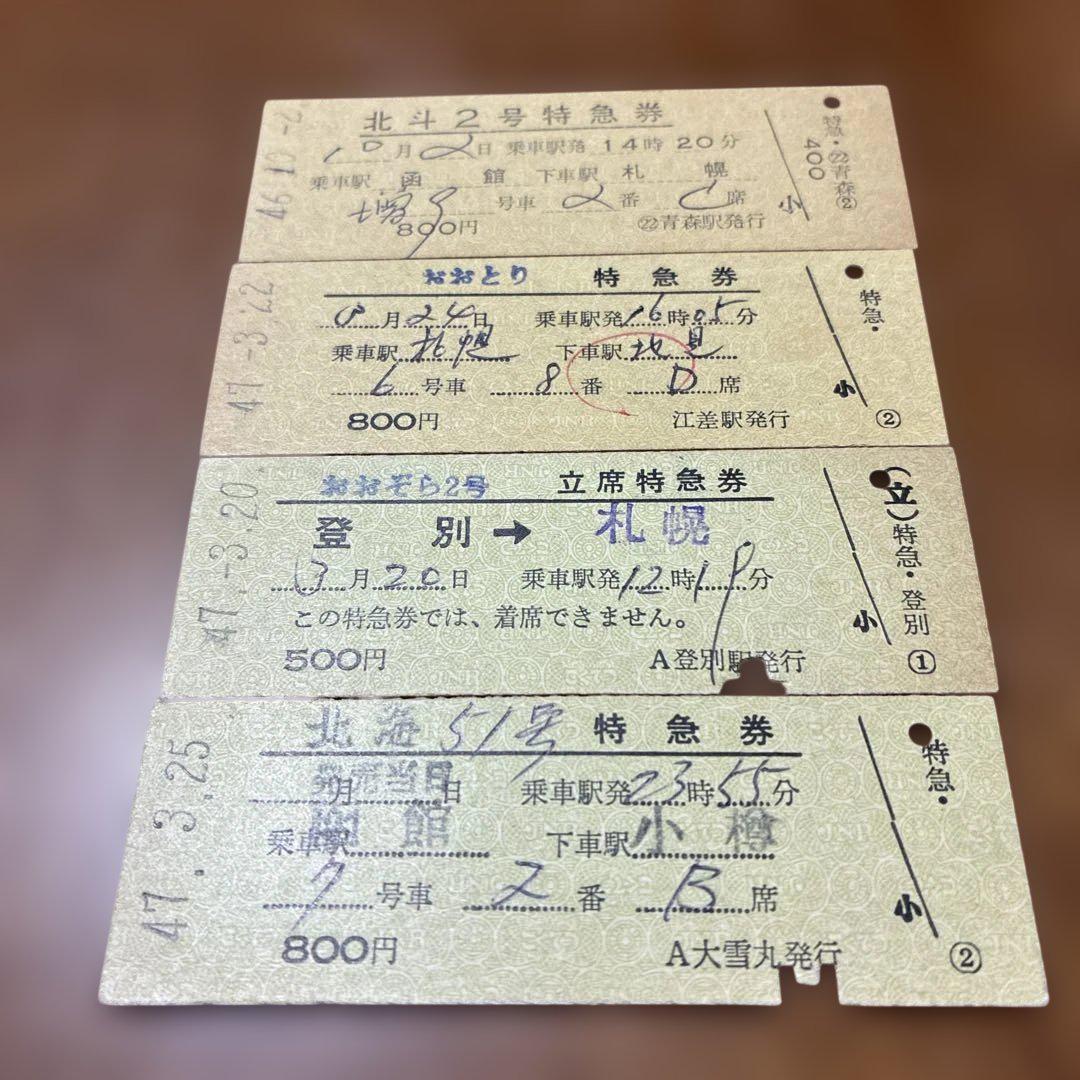 北斗2号特急券
10月2日 乗車駅発 14時20分
乗車駅 函館 下車駅 札幌
9号車 2番 C席
800円 ㉒青森駅発行
46.10.-2
小
特急・㉒青森②
400
おおとり 特急券
3月24日 乗車駅発16時05分
乗車駅 札幌 下車駅 北見
6号車 8番 D席
800円 江差駅発行
47.-3.22
小
特急・
②
おおぞら2号 立席特急券
登別→札幌
3月20日 乗車駅発12時19分
この特急券では、着席できません。
500円 A登別駅発行
47.-3.20
小
(立)特急・登別
①
北海51号 特急券
発売当日
月 日 乗車駅発23時55分
乗車駅 函館 下車駅 小樽
7号車 2番 B席
800円 A大雪丸発行
47.3.25
小
特急・
②